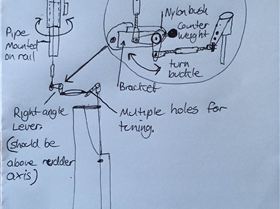 Pipe
mounted
on rail
Nylon bush
Counter
weight
turn
buckle
Bracket
Right angle
Lever.
(should be
above rudder
axis)
Multiple holes for
tuning.